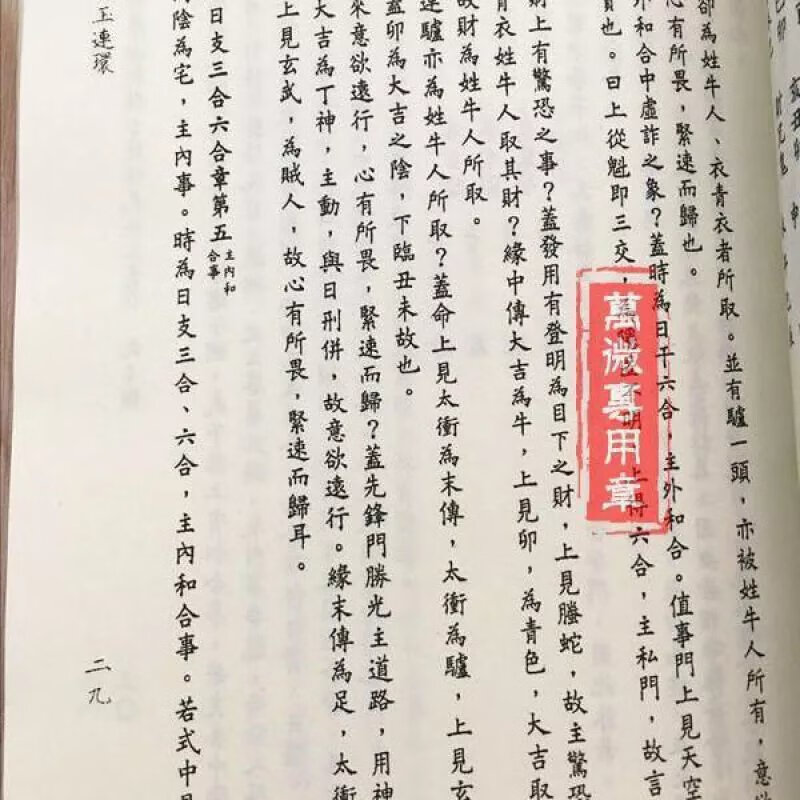 卻為姓牛人、衣青衣者所取。並有驢一頭，亦被姓牛人所有，意
心有所畏，緊速而歸也。
外和合中虛詐之象？蓋時為日干六合，主外和合。值事門上見天空
也。日上從魁即三交，上得六合，主私門，故言
財上有驚恐之事？蓋發用有登明為目下之財，上見螣蛇，故主驚恐
青衣姓牛人取其財？緣中傳大吉為牛，上見卯，為青色，大吉取
故財為姓牛人所取。
連驢亦為姓牛人所取？蓋命上見太衝為末傳，太衝為驢，上見玄
蓋卯為大吉之陰，下臨丑未故也。
來意欲遠行，心有所畏，緊速而歸？蓋先鋒門勝光主道路，用神
大吉為丁神，主動，與日刑併，故意欲遠行。緣末傳為足，太衝
上見玄武，為賊人，故心有所畏，緊速而歸耳。
日支三合六合章第五 主內和合事
陰為宅，主內事。時為日支三合、六合，主內和合事。若式中
玉連環
二九
萬微專用章